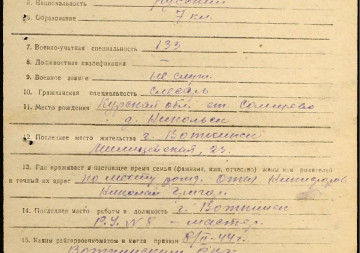 5. Национальность русский
6. Образование 7 кл.
7. Военно-учетная специальность 133
8. Должностная квалификация —
9. Военное звание не служ.
10. Гражданская специальность слесарь
11. Место рождения Курская обл. ст. Солнцево
д. Никольск
12. Последнее место жительства г. Воткинск
Милицейская, 23.
13. Где проживает в настоящее время семья (фамилия, имя, отчество) жены или родителей
и точный их адрес по моему дому. Отец
Николай
14. Последнее место работы и должность г. Воткинск
Р.У. №8 - мастер.
15. Каким райгорвоенкоматом и когда призван 8/II-44г.
Воткинским РВК